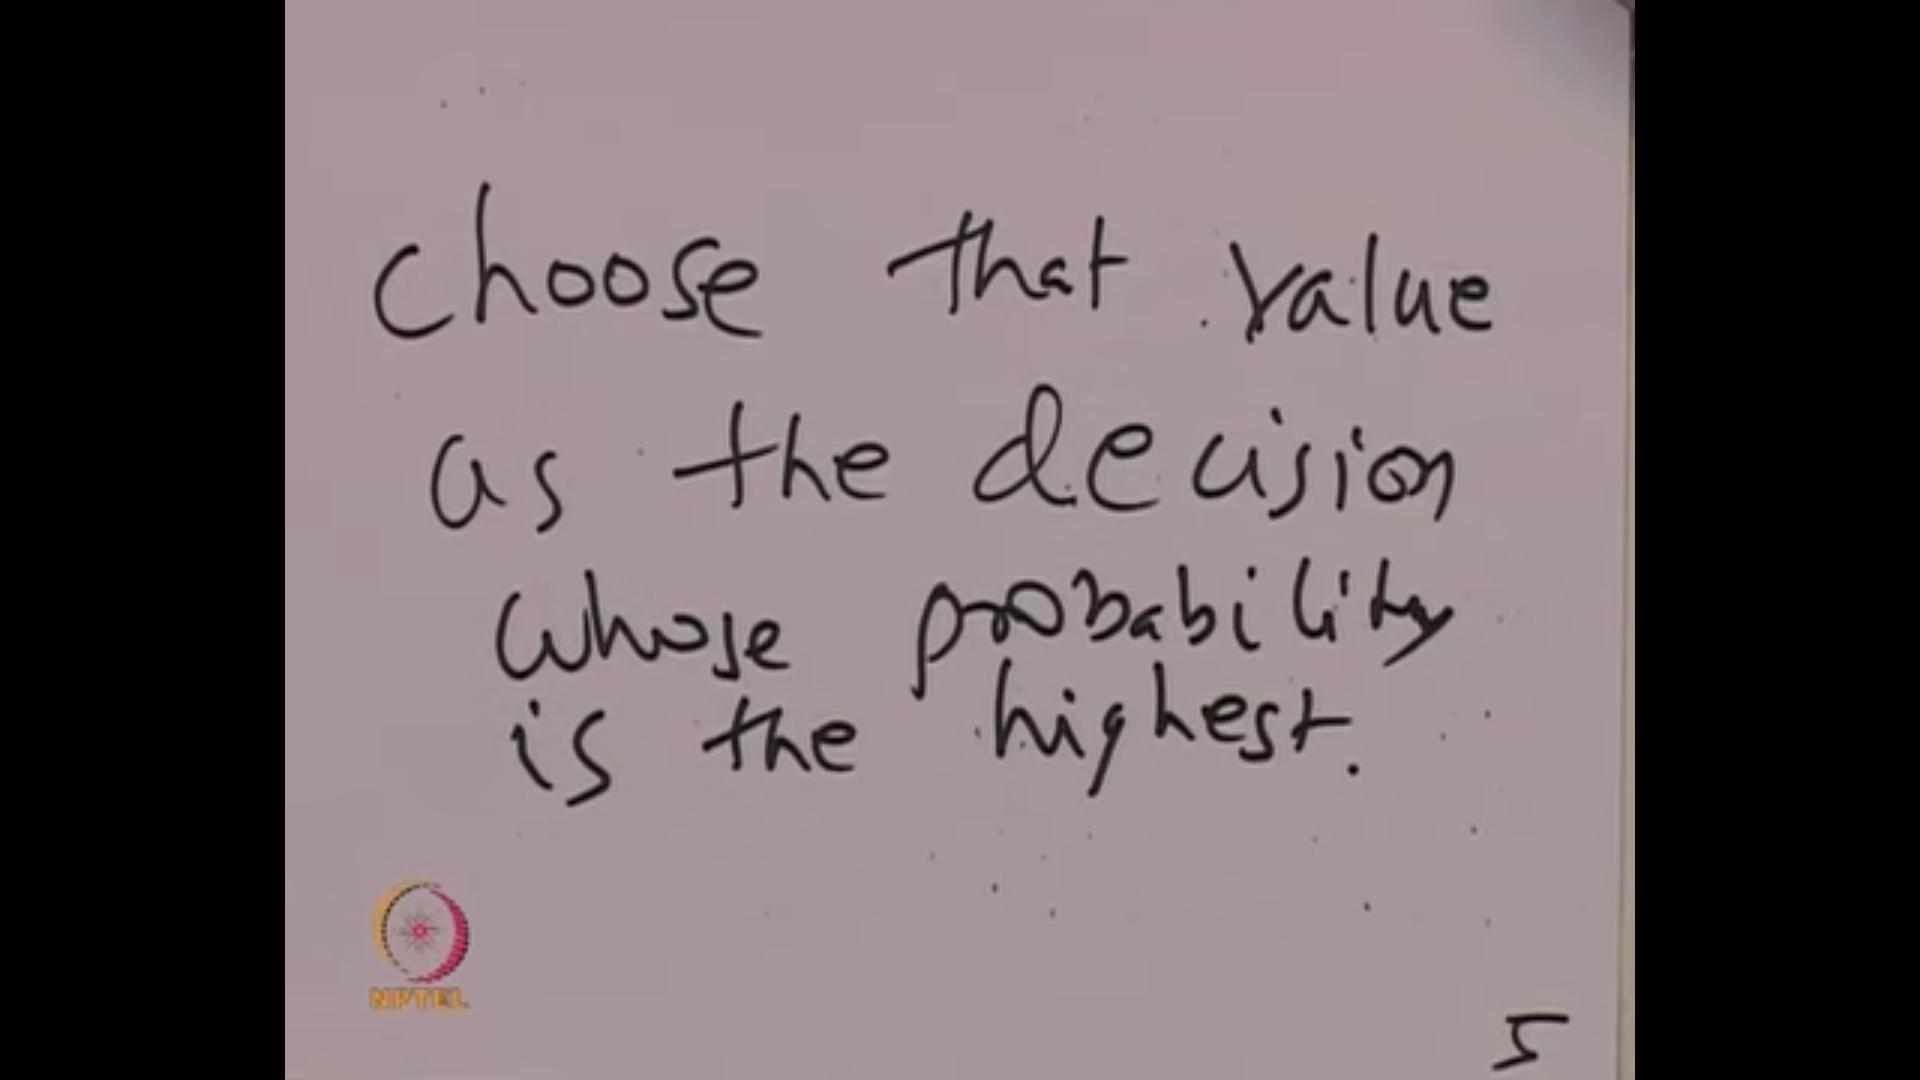 choose that value
as the decision
whose probability
is the highest.
NPTEL
5